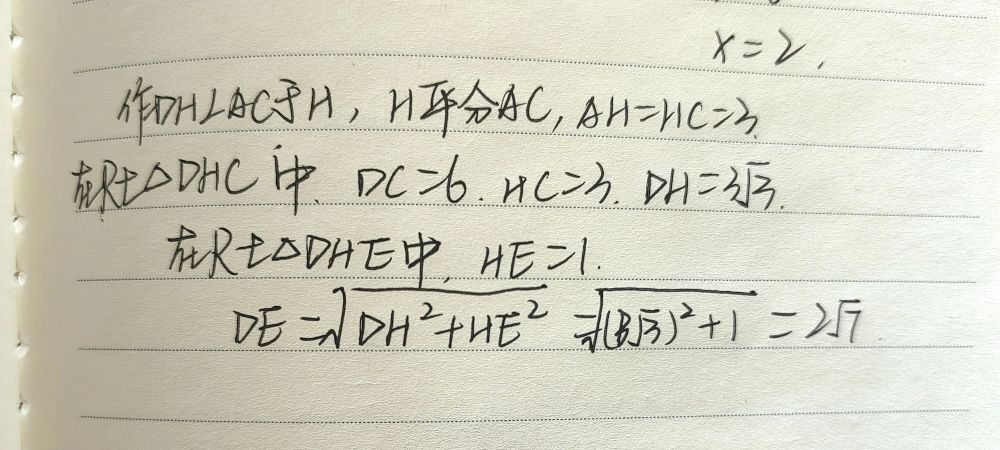 x=2.
作DH⊥AC于H, H平分AC, AH=HC=3.
在Rt△DHC中. DC=6. HC=3. DH=3√3.
在Rt△DHE中. HE=1.
DE=√(DH²+HE²) =√((3√3)²+1) =2√7.